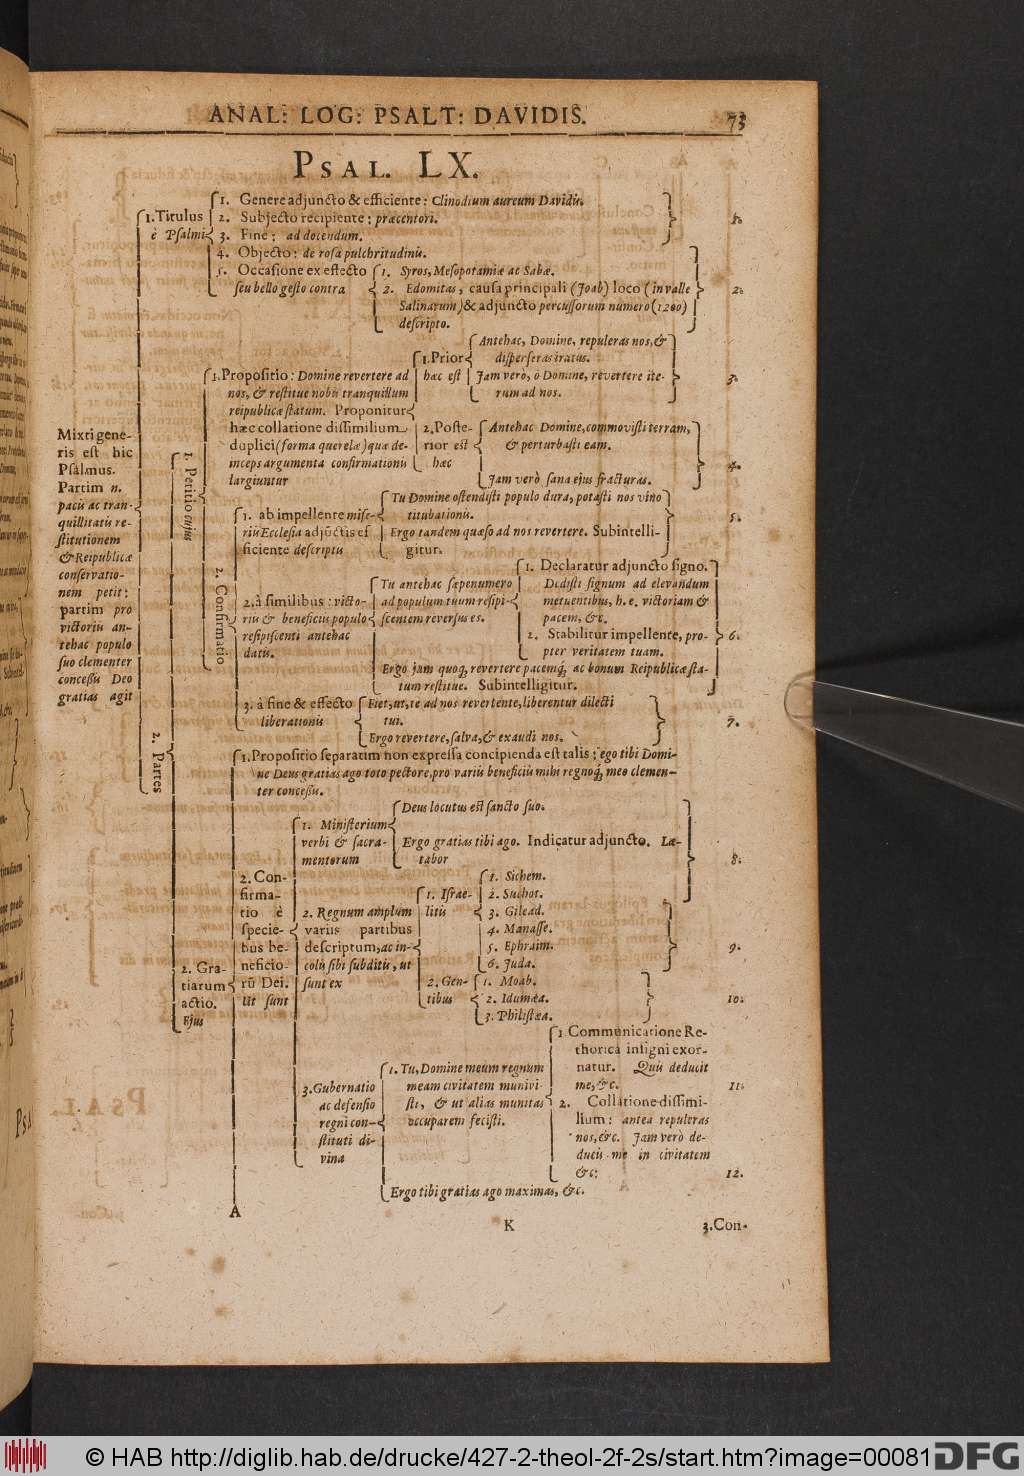 ANAL: LOG: PSALT: DAVIDIS.
73
PSAL. LX.
Mixti gene-
ris est hic
Psalmus.
Partim n.
pacis ac tran-
quillitatis re-
stitutionem
& Reipublicæ
conservatio-
nem petit:
partim pro
victoriis an-
tehac populo
suo clementer
concessis Deo
gratias agit
1. Titulus
è Psalmi
1. Genere adjuncto & efficiente: Clinodium aureum Davidis.
2. Subjecto recipiente: præcentori.
1.
3. Fine: ad docendum.
4. Objecto: de rosa pulchritudinis.
5. Occasione ex effecto
seu bello gesto contra
1. Syros, Mesopotamiæ ac Sabæ.
2. Edomitas, causa principali (Joab) loco (in valle
Salinarum) & adjuncto percussorum numero (1200)
descripto.
2.
2. Partes
1. Petitio cujus
1. Propositio: Domine revertere ad
nos, & restitue nobis tranquillum
reipublicæ statum. Proponitur
hæc collatione dissimilium
duplici (forma querelæ) quæ de-
inceps argumenta confirmationis
largiuntur
1. Prior
hæc est
Antehac, Domine, repuleras nos, &
disperseras iratus.
Jam verò, ô Domine, revertere ite-
rum ad nos.
3.
2. Poste-
rior est
hæc
Antehac Domine, commovisti terram,
& perturbasti eam.
Jam verò sana ejus fracturas.
4.
2. Confirmatio
1. ab impellente mise-
riis Ecclesiæ adjunctis ef
ficiente descriptis
Tu Domine ostendisti populo dura, potasti nos vino
titubationis.
Ergo tandem quæso ad nos revertere. Subintelli-
gitur.
5.
2. à similibus: victo-
riis & beneficiis populo
resipiscenti antehac
datis.
Tu antehac sæpenumero
ad populum tuum resipi-
scentem reversus es.
1. Declaratur adjuncto signo.
Dedisti signum ad elevandum
metuentibus, h. e. victoriam &
pacem, &c.
2. Stabilitur impellente, pro-
pter veritatem tuam.
6.
Ergo jam quoq, revertere pacemq, ac bonum Reipublicæ sta-
tum restitue. Subintelligitur.
3. à fine & effecto
liberationis
Fiet, ut, te ad nos revertente, liberentur dilecti
tui.
Ergo revertere, salva, & exaudi nos.
7.
2. Gra-
tiarum
actio.
Ejus
1. Propositio separatim non expressa concipienda est talis; ego tibi Domi-
ne Deus gratias ago toto pectore, pro variis beneficiis mihi regnoq, meo clemen-
ter concessis.
2. Con-
firma-
tio è
specie-
bus be-
neficio-
rū Dei.
Ut sunt
1. Ministerium
verbi & sacra-
mentorum
Deus locutus est sancto suo.
Ergo gratias tibi ago. Indicatur adjuncto. Læ-
tabor
8.
2. Regnum amplum
variis partibus
descriptum, ac in-
colis sibi subditis, ut
sunt ex
1. Israe-
litis
1. Sichem.
2. Suchot.
3. Gilead.
4. Manasse.
5. Ephraim.
6. Juda.
9.
2. Gen-
tibus
1. Moab.
2. Idumæa.
3. Philistæa.
10.
3. Gubernatio
ac defensio
regni con-
stituti di-
vina
1. Tu, Domine meum regnum
meam civitatem munivi-
sti, & ut alias munitas
occuparem fecisti.
1 Communicatione Re-
thorica insigni exor-
natur. Quis deducit
me, &c.
11.
2. Collatione dissimi-
lium: antea repuleras
nos, &c. Jam verò de-
ducis me in civitatem
&c:
12.
Ergo tibi gratias ago maximas, &c.
A
K
3. Con-
© HAB http://diglib.hab.de/drucke/427-2-theol-2f-2s/start.htm?image=00081
DFG